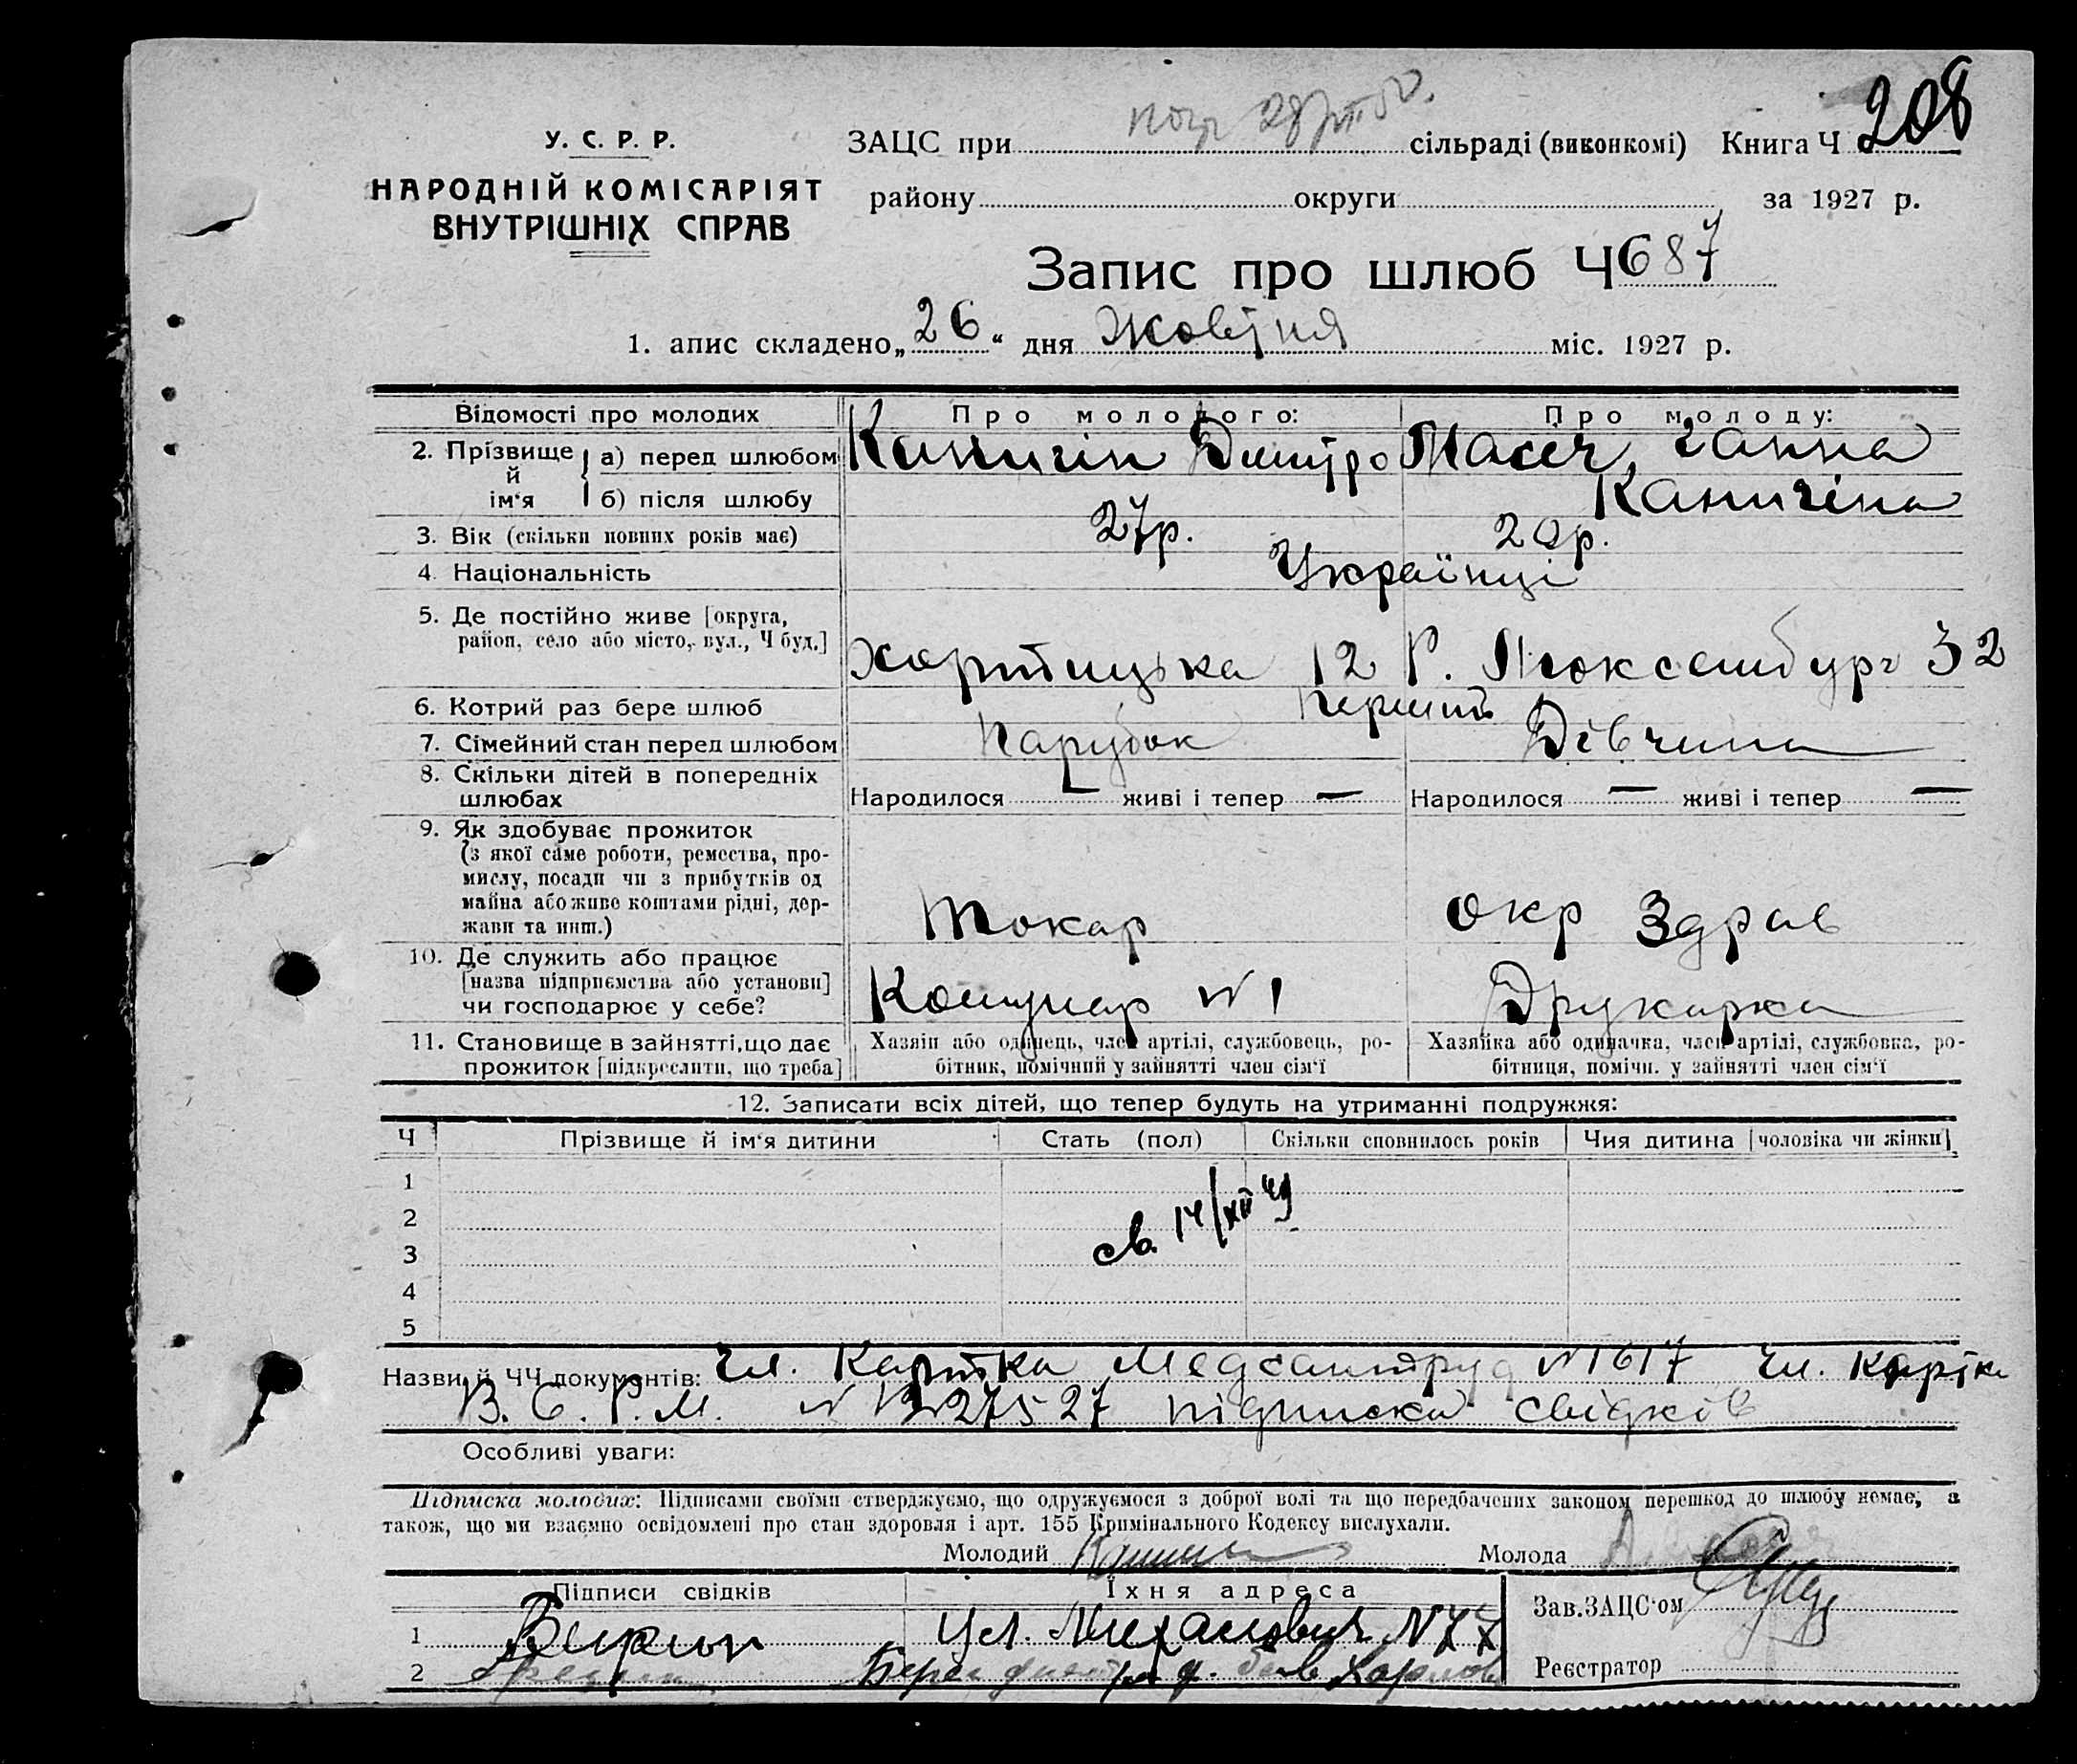 208
У. С. Р. Р.
НАРОДНІЙ КОМІСАРІЯТ
ВНУТРІШНІХ СПРАВ
ЗАЦС при сільраді (виконкомі) Книга Ч
району округи за 1927 р.
Запис про шлюб Ч 687
1. апис складено „26“ дня Жовтня міс. 1927 р.
Відомості про молодих Про молодого: Про молоду:
2. Прізвище й ім‘я а) перед шлюбом Каничін Дмитро Масіч, Ганна
б) після шлюбу Каничіна
3. Вік (скільки повних років має) 27р. 20р.
4. Національність Українці
5. Де постійно живе [округа,
район, село або місто, вул., Ч буд.] Хортицька 12 Р. Люксембург 32
6. Котрий раз бере шлюб Перший
7. Сімейний стан перед шлюбом Парубок Дівчина
8. Скільки дітей в попередніх
шлюбах Народилося — живі і тепер — Народилося — живі і тепер —
9. Як здобуває прожиток
(з якої саме роботи, ремества, про-
мислу, посади чи з прибутків од
майна або живе коштами рідні, дер-
жави та инш.) Токар Окр Здрав
10. Де служить або працює
[назва підприємства або установи]
чи господарює у себе? Комунар №1 Друкарка
11. Становище в зайнятті, що дає
прожиток [підкреслити, що треба]
Хазяїн або одинець, член артілі, службовець, ро-
бітник, помічний у зайнятті член сім‘ї
Хазяйка або одиначка, член артілі, службовка, ро-
бітниця, помічн. у зайнятті член сім‘ї
12. Записати всіх дітей, що тепер будуть на утриманні подружжя:
Ч Прізвище й ім‘я дитини Стать (пол) Скільки сповнилось років Чия дитина [чоловіка чи жінки]
1
2
3
4
5
св. 14/XII 49
Назви й ЧЧ документів: Чл. Картка Медсантруд №1617 чл. картка
В. С. Р. М. підписка свідків
Особливі уваги:
Підписка молодих: Підписами своїми стверджуємо, що одружуємося з доброї волі та що передбачених законом перешкод до шлюбу немає, а
також, що ми взаємно освідомлені про стан здоров‘я і арт. 155 Кримінального Кодексу вислухали.
Молодий Молода
Підписи свідків Їхня адреса
1
2
Зав.ЗАЦС‘ом
Реєстратор